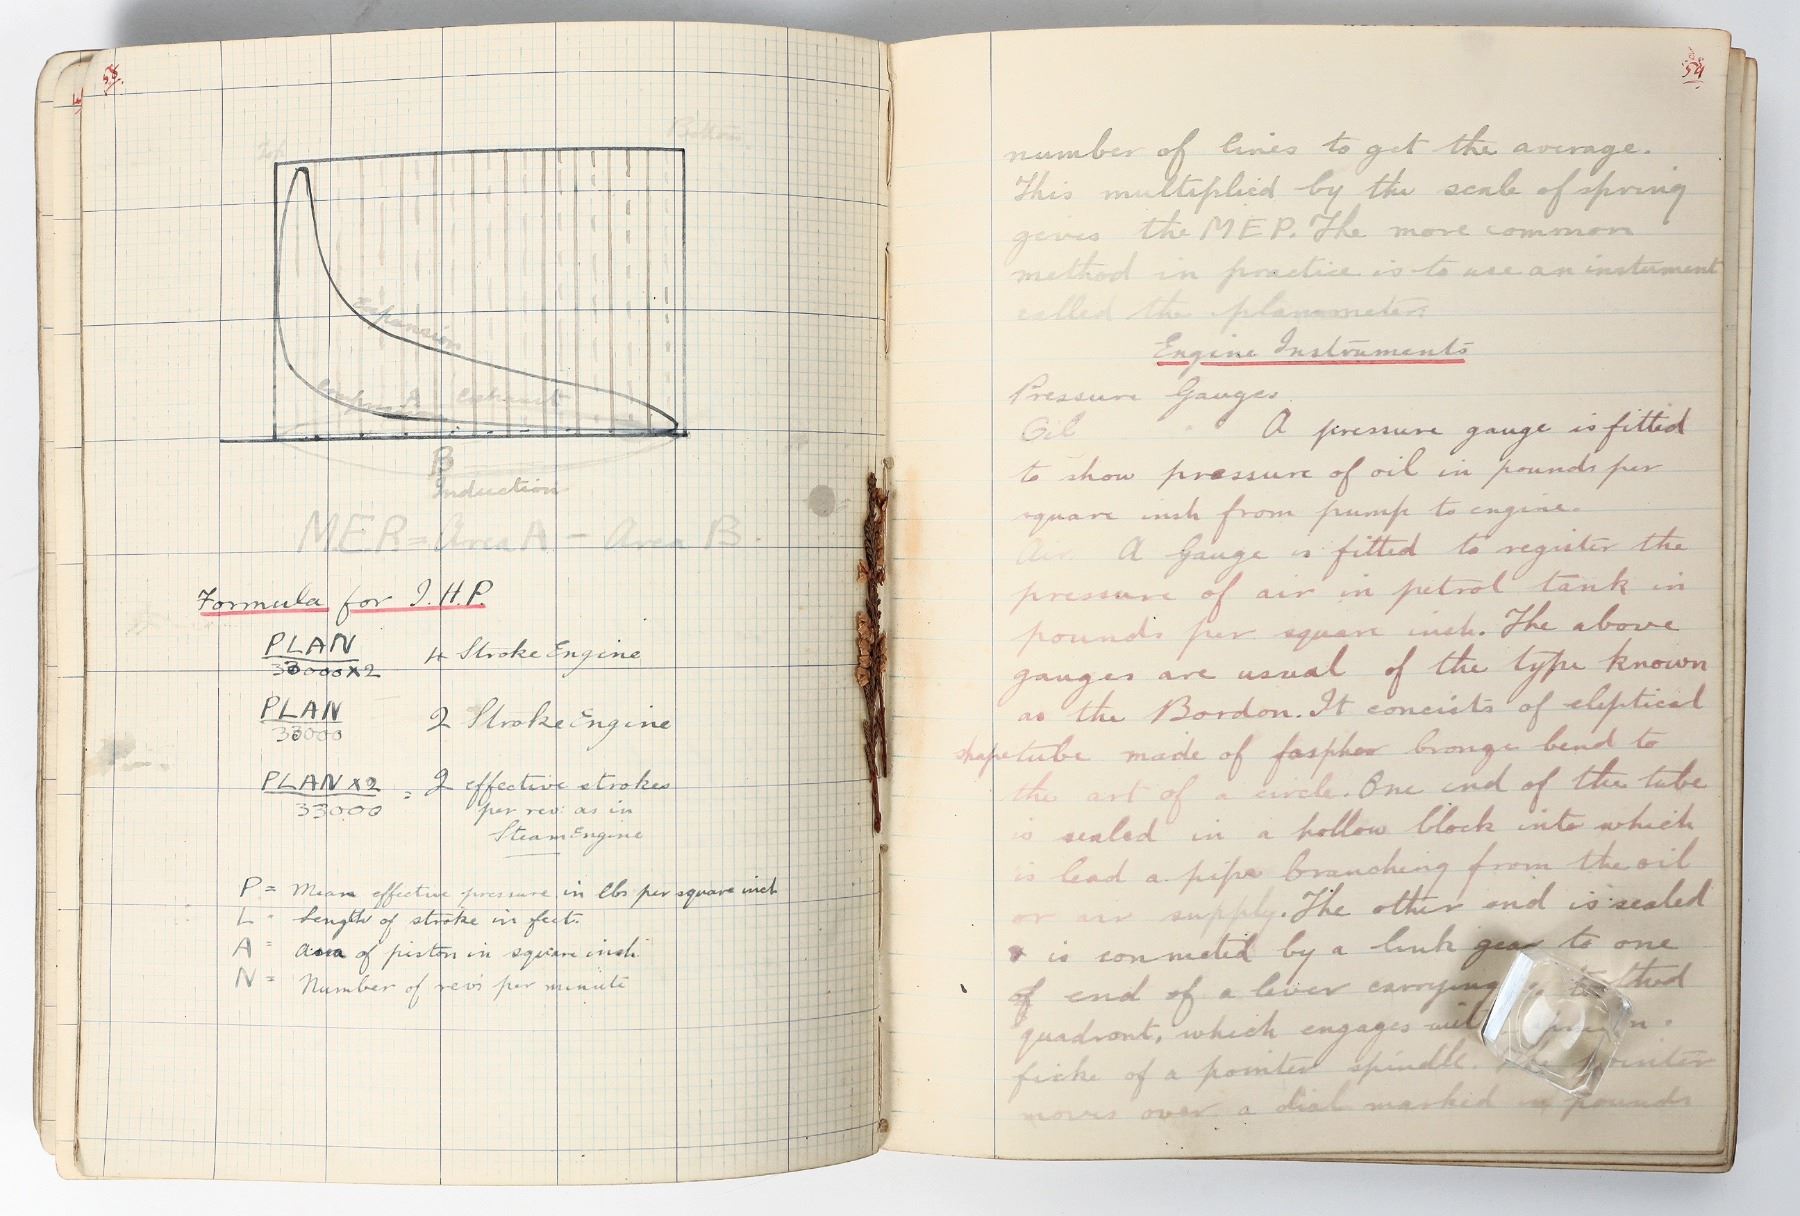 58.
Top
Bottom
Expansion
Compression A Exhaust
B
Induction
M.E.P. = Area A - Area B.
Formula for I.H.P.
PLAN
33000x2
4 Stroke Engine
PLAN
33000
2 Stroke Engine
PLAN x2
33000
= 2 effective strokes
per rev: as in
Steam Engine
P = Mean effective pressure in lbs per square inch
L = Length of stroke in feet.
A = area of piston in square inch
N = Number of revs per minute
number of lines to get the average.
This multiplied by the scale of spring
gives the M E P. The more common
method in practice is to use an insterment
called the planometer.
Engine Instruments
Pressure Gauges
Oil A pressure gauge is fitted
to show pressure of oil in pounds per
square inch from pump to engine.
Air A Gauge is fitted to register the
pressure of air in petrol tank in
pounds per square inch. The above
gauges are usual of the type known
as the Bordon. It concists of eleptical
shape tube made of fosphor bronze bend to
the art of a circle. One end of the tube
is sealed in a hollow block into which
is lead a pipe branching from the oil
or air supply. The other end is sealed
is conneted by a link gear to one
of end of a lever carrying
quadront, which engages
of a pointer spindle. The pointer
moves over a dial marked in pounds